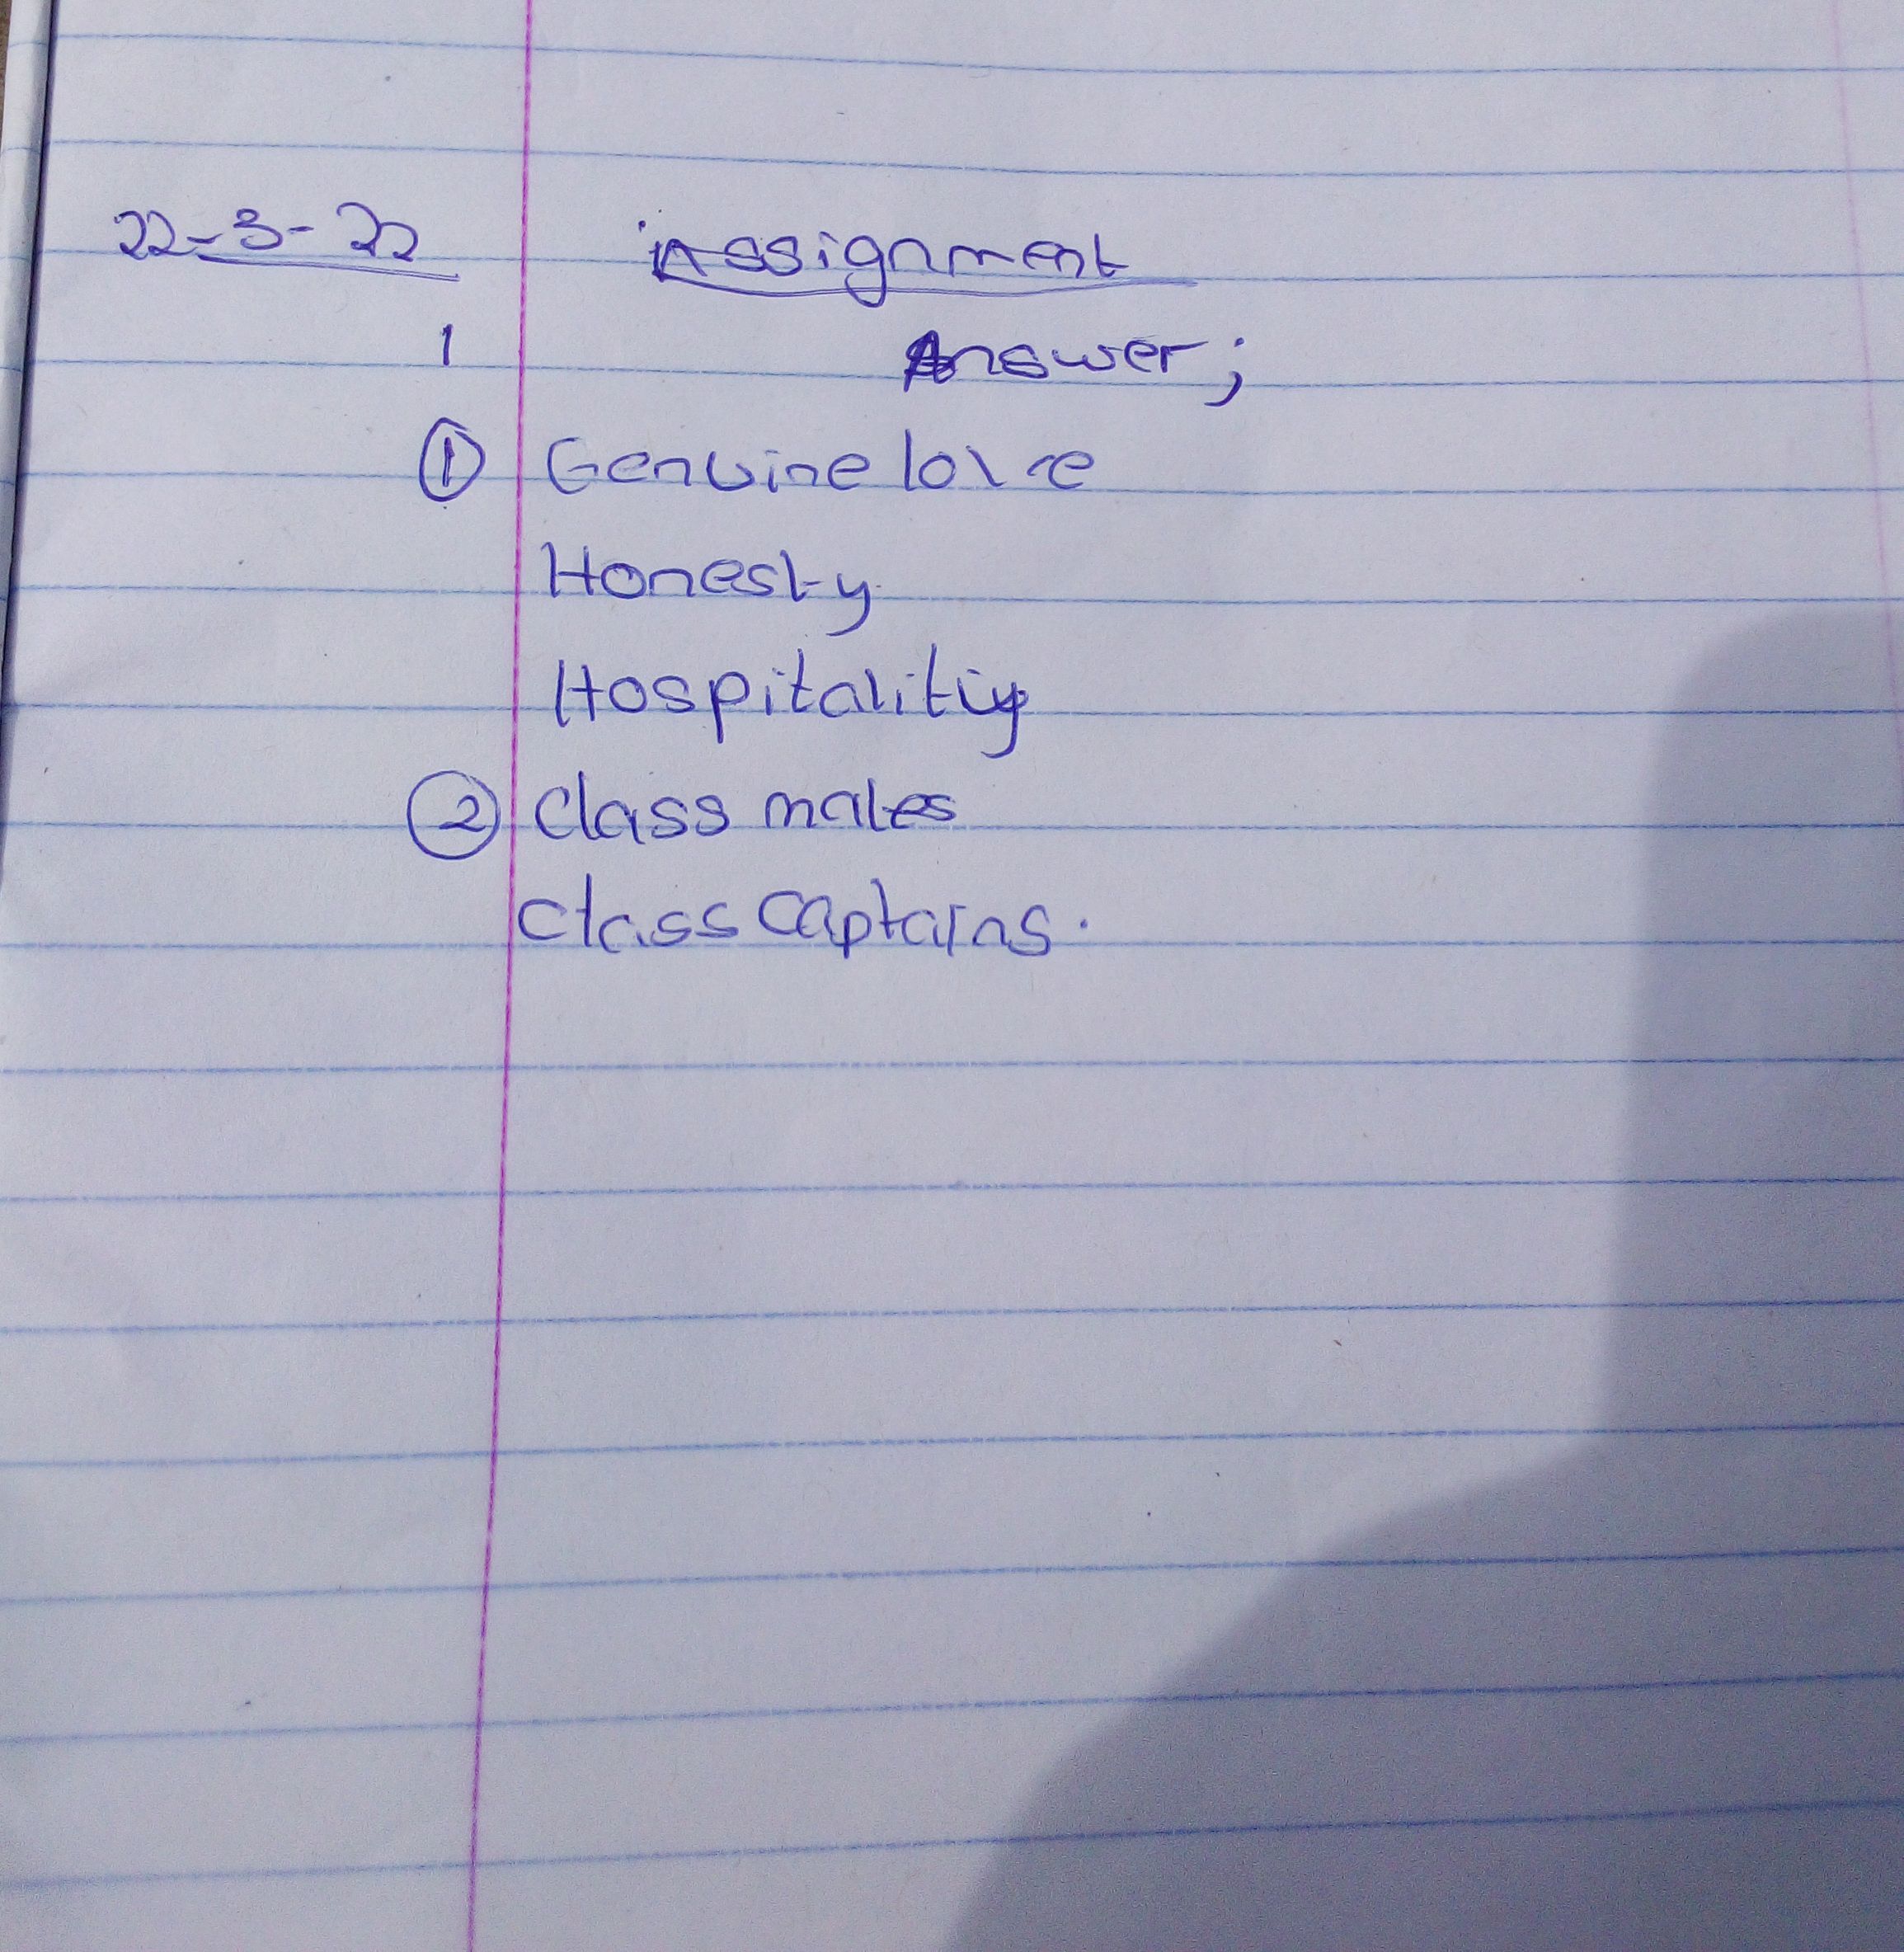 22-3-22 Assignment
1 Answer;
① Genuine love
Honesty
Hospitality
② Class mates
Class Captains.